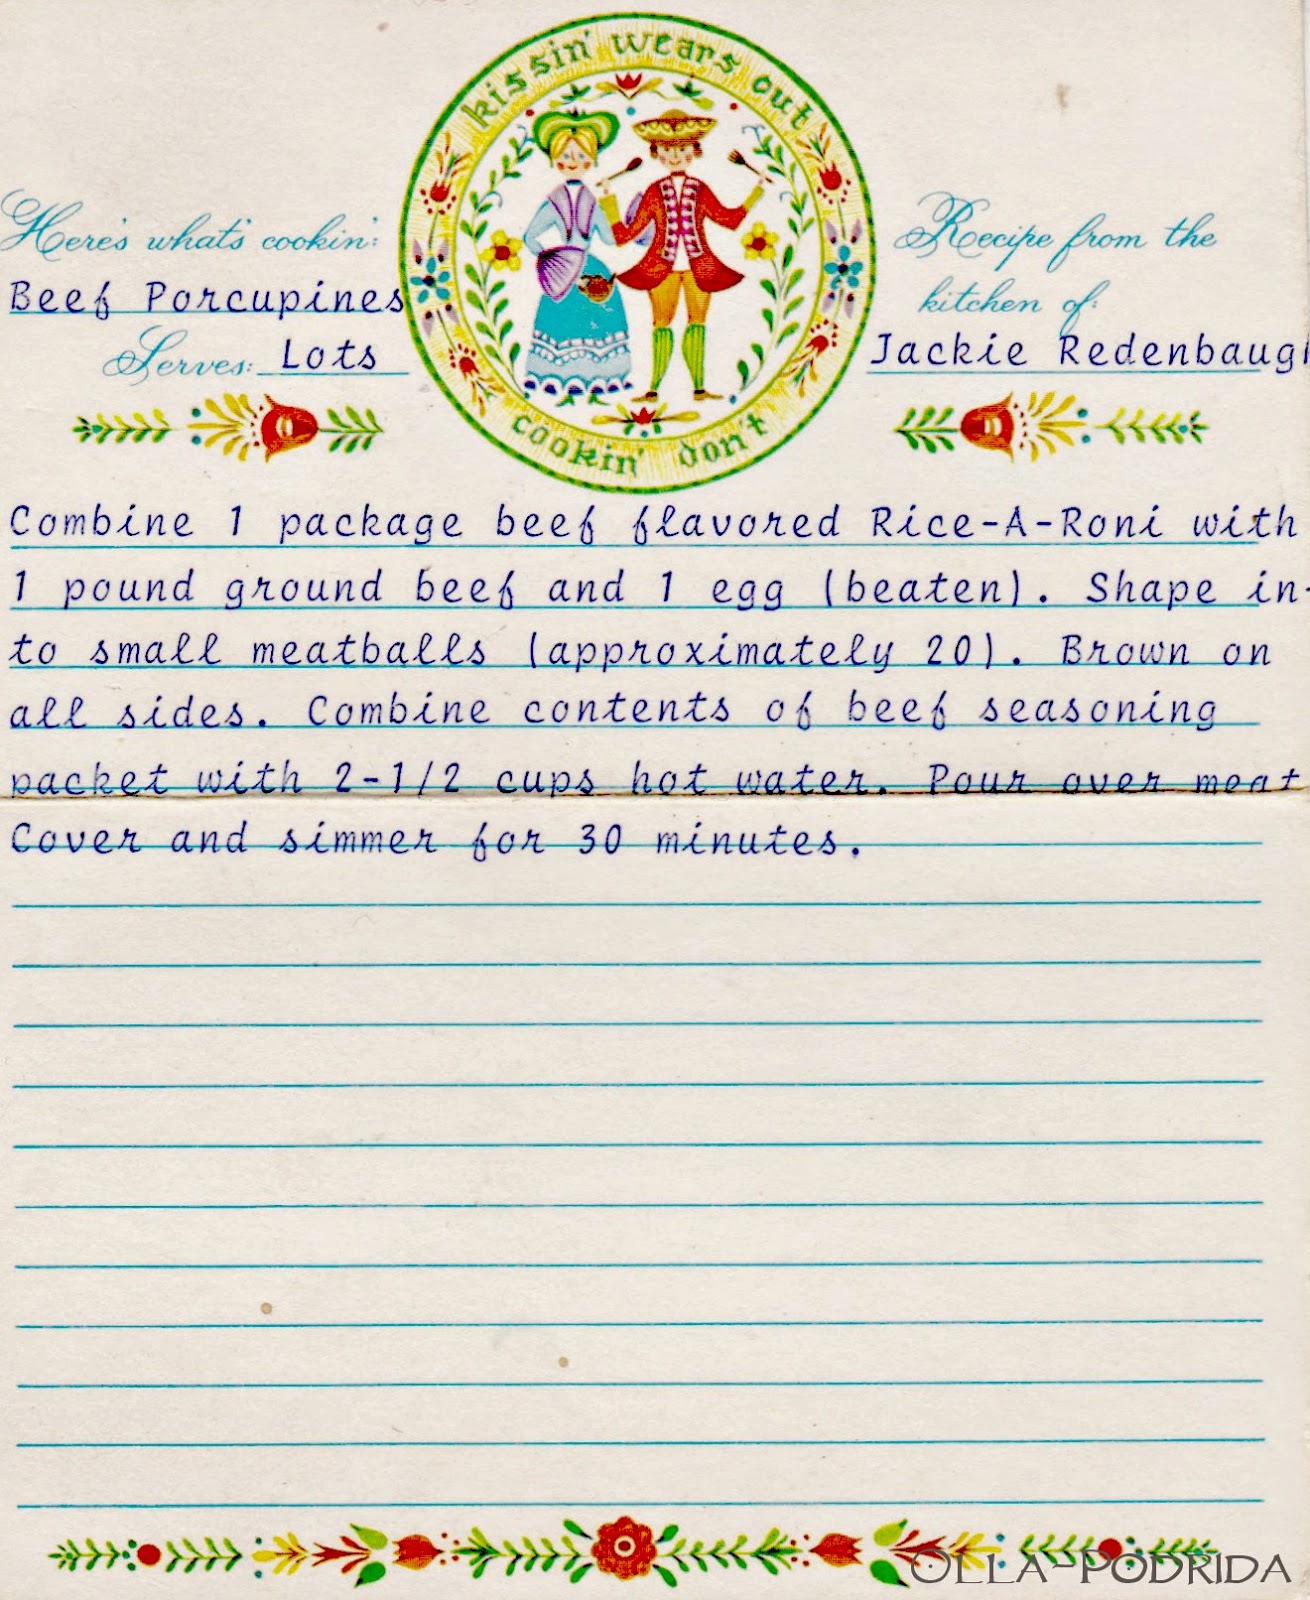 kissin' wears out
Here's what's cookin':
Beef Porcupines
Serves: Lots
Recipe from the
kitchen of:
Jackie Redenbaugh
cookin' don't
Combine 1 package beef flavored Rice-A-Roni with
1 pound ground beef and 1 egg (beaten). Shape in-
to small meatballs (approximately 20). Brown on
all sides. Combine contents of beef seasoning
packet with 2-1/2 cups hot water. Pour over meat
Cover and simmer for 30 minutes.
OLLA-PODRIDA